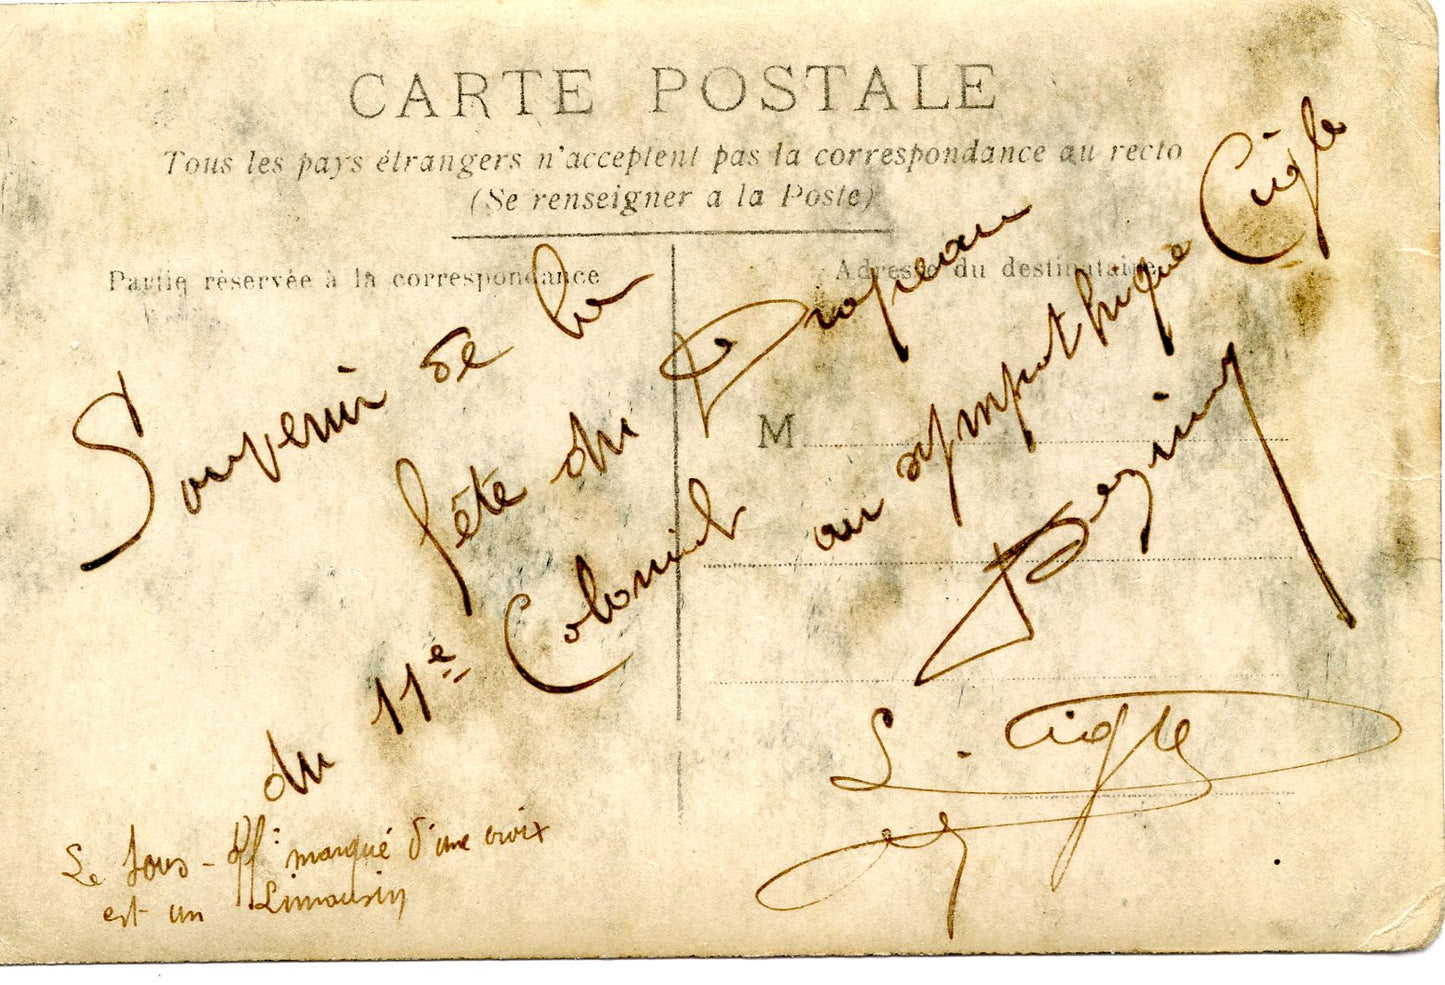 CARTE POSTALE
Tous les pays étrangers n'acceptent pas la correspondance au recto
(Se renseigner a la Poste)
Partie réservée à la correspondance
Adresse du destinataire
M
Souvenir de la
fête du Drapeau
du 11e Colonial
au sympathique Cigle
L. Cigle
Le Sous-Off: marqué d'une croix
est un Limousin